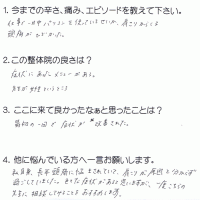 1. 今までの辛さ、痛み、エピソードを教えて下さい。
仕事で一日中パソコンを使っているせいか、肩こりからくる
頭痛がひどかった。
2. この整体院の良さは？
症状に あったメニューがある。
先生が女性というところ
3. ここに来て良かったなぁと思ったことは？
最初の一回で 症状が 改善された。
4. 他に悩んでいる方へ一言お願いします。
私自身、長年頭痛に悩まされていて、肩こりが原因と分からず
過ごしていました。色々な症状があると思いますが、一度こちらの
先生に相談してみることをおすすめします。